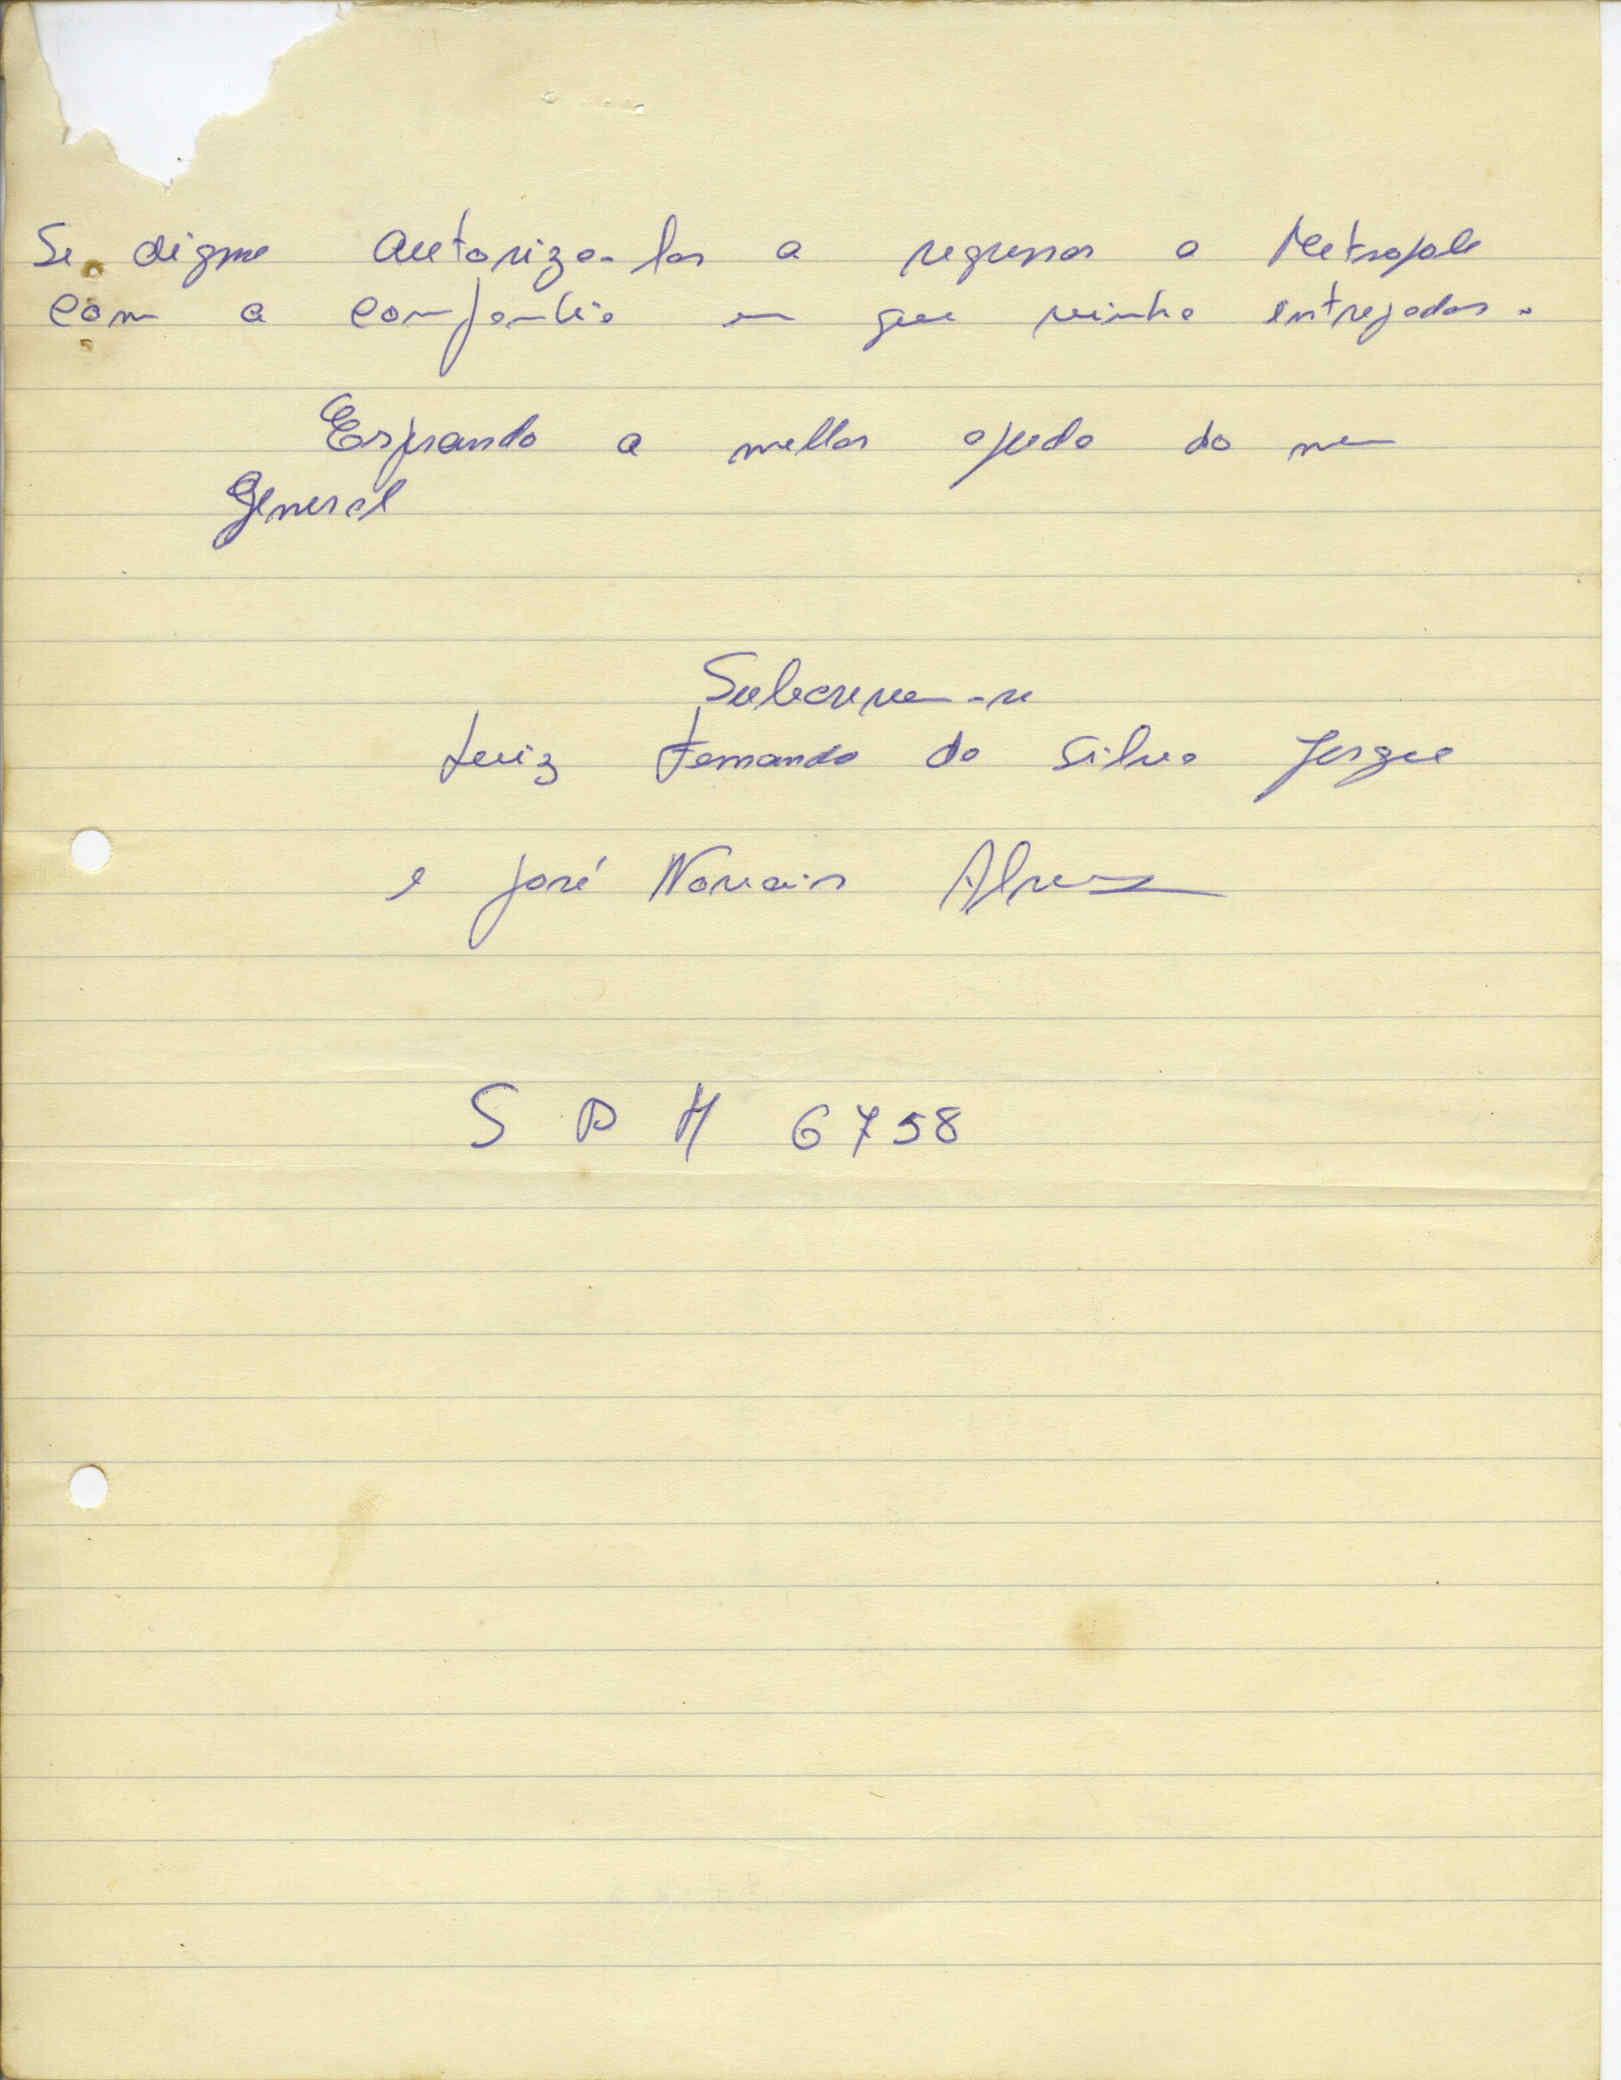 Se digne autoriza-los a regressar a Metropole
com a companhia em que vinha entregados.
Esperando a melhor ajuda do meu
General
Subscrevem-se
Luiz Fernando da Silva Jorge
e José Alves
S P M 6758